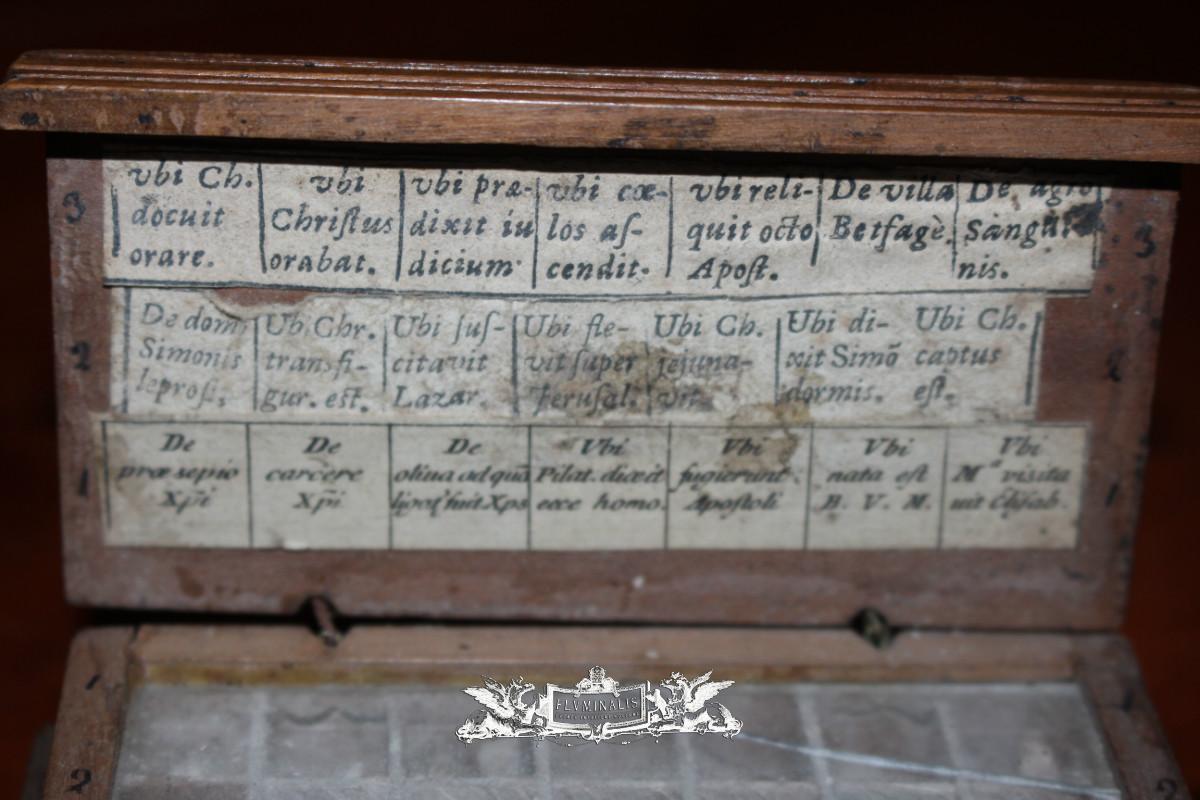 3
vbi Ch.
docuit
orare.
vbi
Christus
orabat.
vbi præ-
dixit iu
dicium
vbi cœ-
los as-
cendit.
vbi reli-
quit octo
Apost.
De villa
Betfagè.
De agro
Sangui
nis.
3
2
De dom.
Simonis
leprosi.
Ub. Chr.
transfi-
gur. est.
Ubi sus-
citavit
Lazar.
Ubi fle-
vit super
Jerusal.
Ubi Ch.
jejuna-
vit
Ubi di-
xit Simõ
dormis.
Ubi Ch.
captus
est.
2
1
De
præsepio
Xp̃i
De
carcere
Xp̃i
De
oliua ad quã
fuit Xps
Vbi
Pilat. dixit
ecce homo.
Vbi
fugierunt
Apostoli
Vbi
nata est
B. V. M.
Vbi
M visita
uit Elisab.
1
FLVMINALIS
2
2